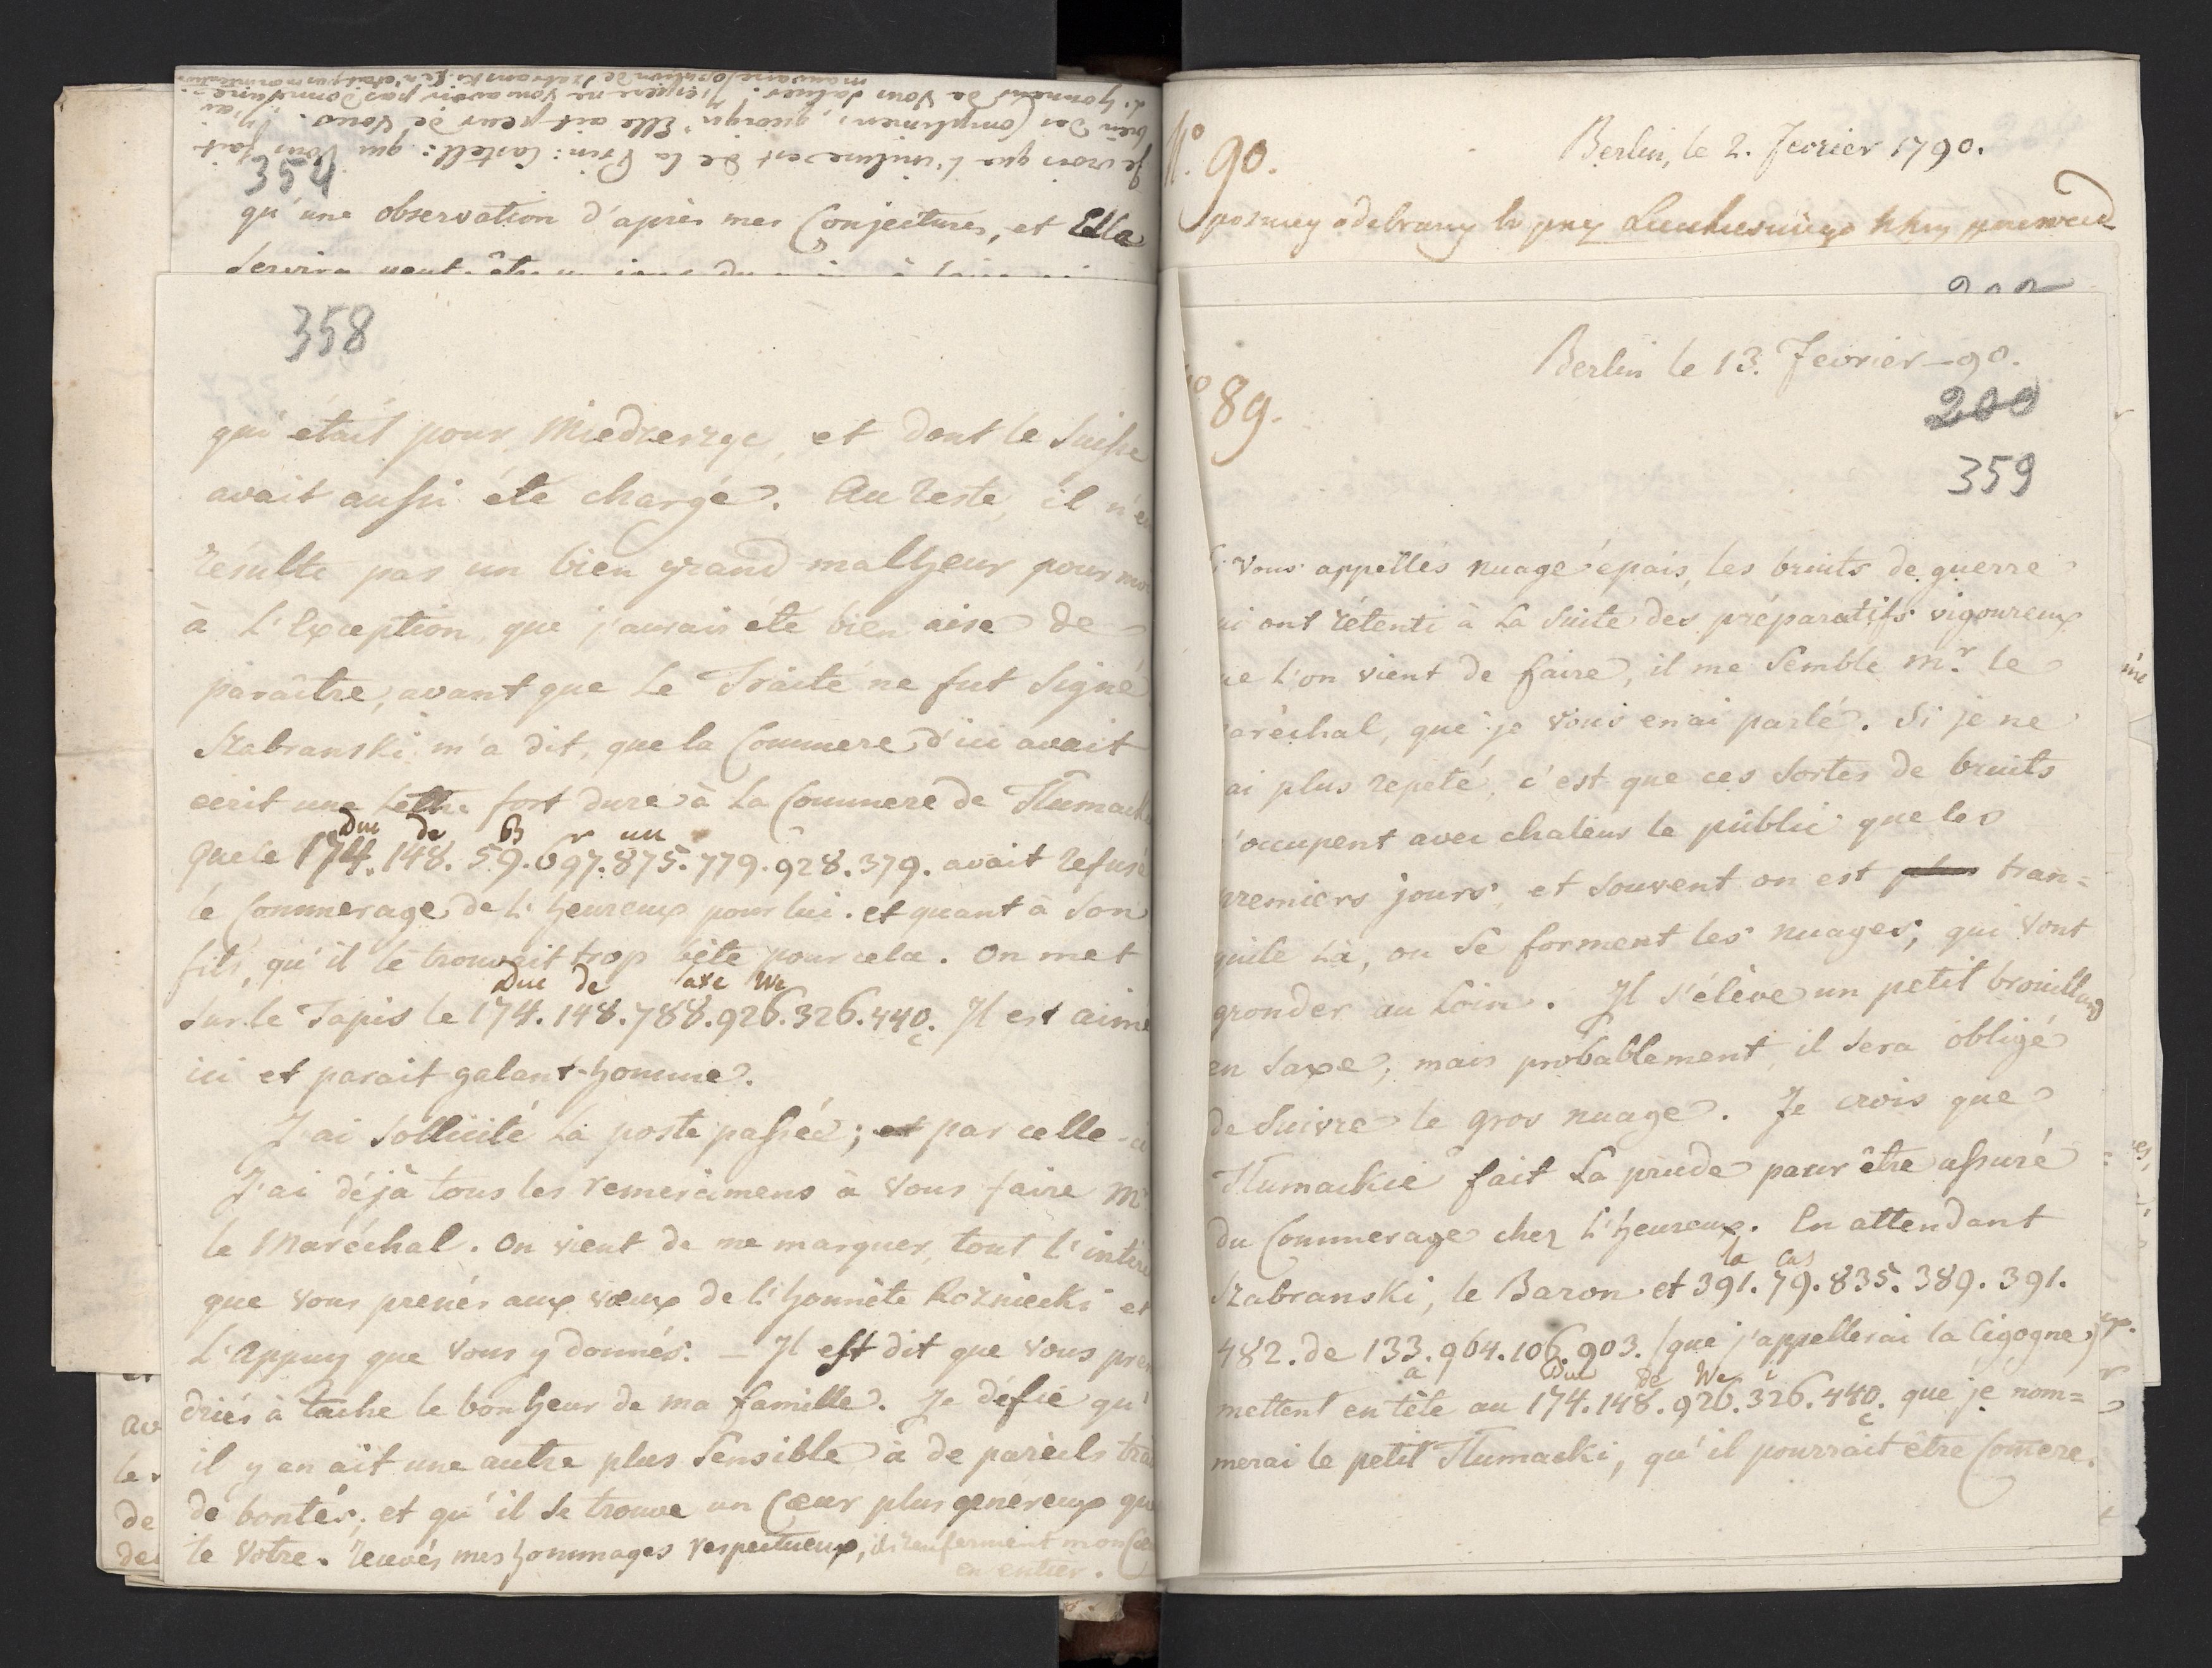 354
qu'une observation d'après mes Conjectures, et Elle
358
qui était pour Miedzerzyc, et dont le Suisse
avait aussi été chargé. Au reste, il n'en
résulte pas un bien grand malheur pour moi
à L'Exception, que j'aurais été bien aise de
paraître, avant que Le Traité ne fut Signé
Szabranski m'a dit, que la Commere d'ici avait
ecrit une Lettre fort dure à La Commere de Tlumacki
Duc de B r un
que le 174. 148. 59. 697. 875. 779. 928. 379. avait refusé
le Commerage de L'heureux pour lui. et quant à Son
fils, qu'il le trouvait trop bête pour cela. On met
Duc de Saxe We
Sur le Tapis le 174. 148. 788. 926. 326. 440. Il est aimé
ici et parait galant-homme.
J'ai Sollicité La poste passée; et par celle-ci
J'ai déjà tous les remercimens à Vous faire Mr
le Maréchal. On vient de me marquer, tout L'intere
que Vous prenés aux vœux de L'honnête Rozniecki et
L'Appuy que Vous y donnés. – Il est dit que Vous pren
driés à tache le bonheur de ma famille. Je défie qu'
il y en ait une autre plus Sensible à de pareils trai
de bontés, et qu'il se trouve un Cœur plus genereux que
le Votre. Recevés mes hommages respectueux, ils renferment mon Cœu
en entier.
No 90.
Berlin, le 2. Fevrier 1790.
No 89.
Berlin le 13. Fevrier – 90.
200
359
Vous appellés nuage épais, les bruits de guerre
ui ont rétenti à La Suite des préparatifs vigoureux
ue L'on vient de faire, il me Semble Mr. le
aréchal, que je Vous en ai parlé. Si je ne
ai plus repeté, c'est que ces Sortes de bruits
'occupent avec chaleur le public que les
premiers jours, et Souvent on est plus tran=
quile Là, ou Se forment les nuages; qui Vont
gronder au Loin. Il s'élève un petit brouillard
en Saxe, mais probablement, il Sera obligé
de Suivre le gros nuage. Je crois que
Tlumackie fait La prude pour être assuré
du Commerage chez L'heureux. En attendant
la Cas
Szabranski, le Baron et 391. 79. 835. 389. 391.
482. de 133. 964. 106. 903. (que j'appellerai la Cigogne)
a Duc de We i
mettent en tête au 174. 148. 926. 326. 440. que je nom=
c
merai le petit Tlumacki, qu'il pourrait être Comere.